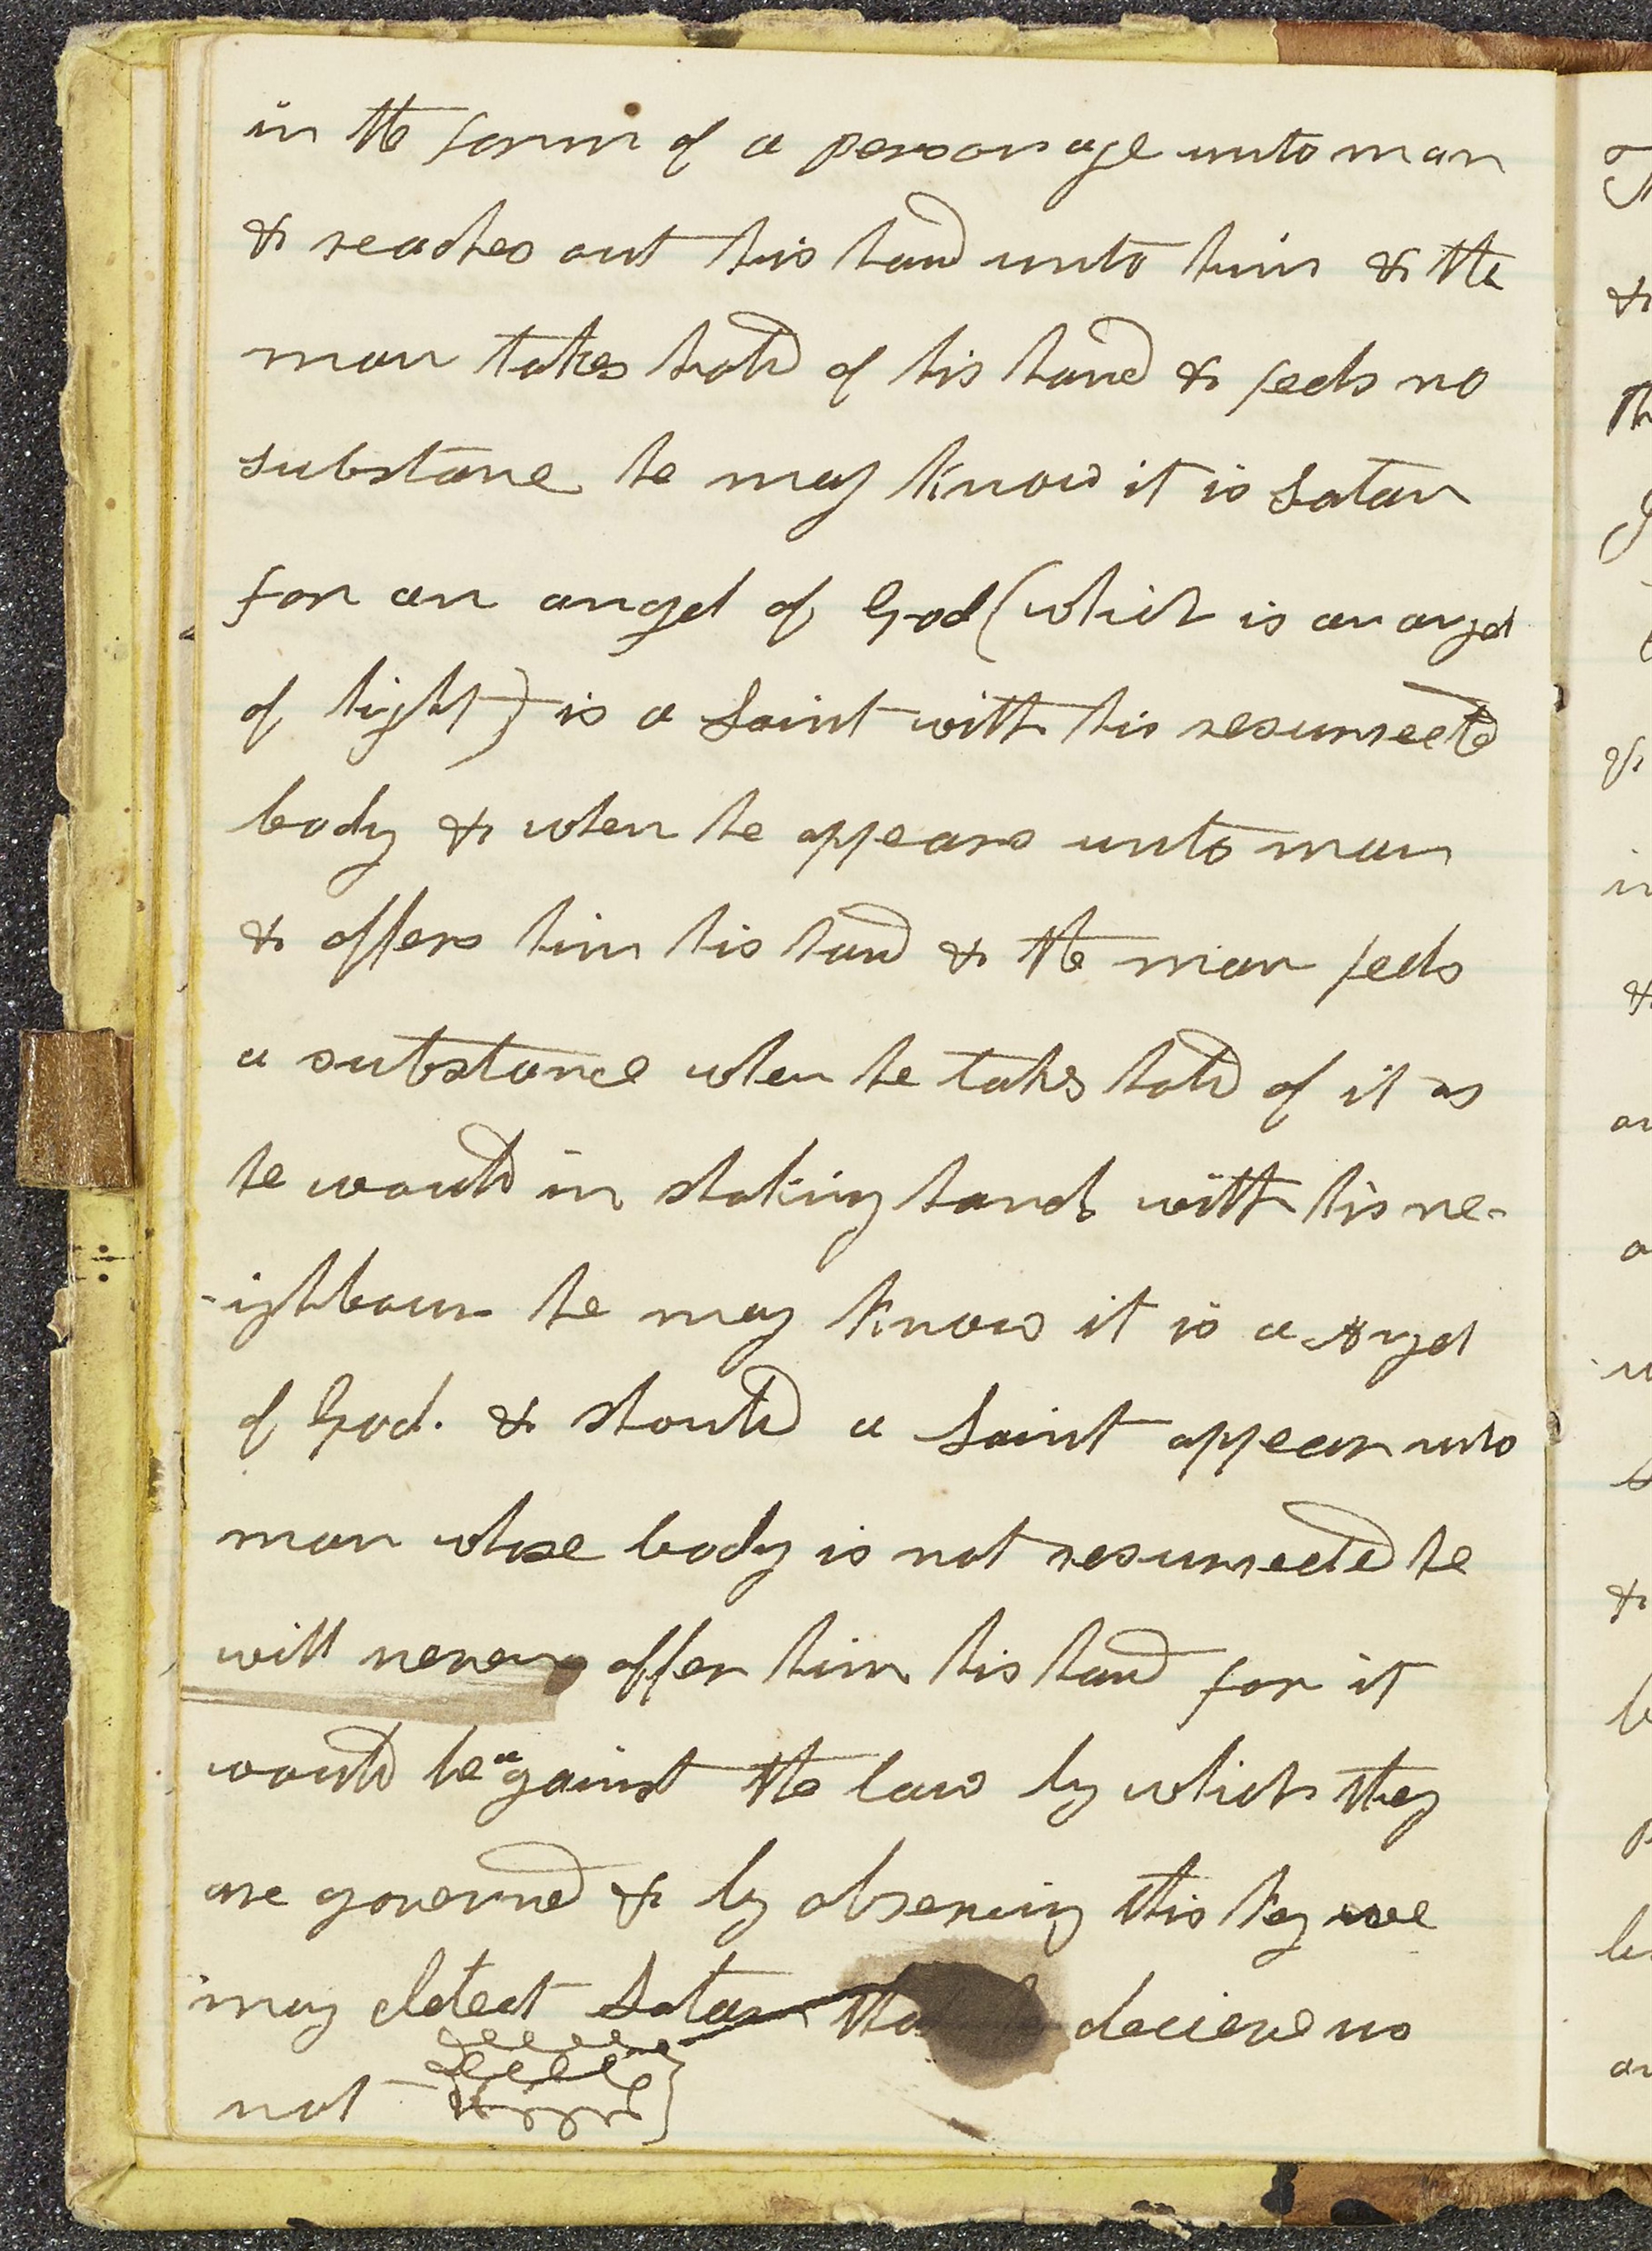 in the form of a personage unto man
& reaches out his hand unto him & the
man takes hold of his hand & feels no
substance he may know it is Satan
for an angel of God (which is an angel
of light) is a Saint with his resurrected
body & when he appears unto man
& offers him his hand & the man feels
a substance when he takes hold of it as
he would in shaking hands with his ne-
-ighbour he may know it is a angel
of God. & should a Saint appear unto
man whose body is not resurrected he
will never offer him his hand for it
would be against the law by which they
are governed & by observing this key we
may detect Satan that he decieve us
not